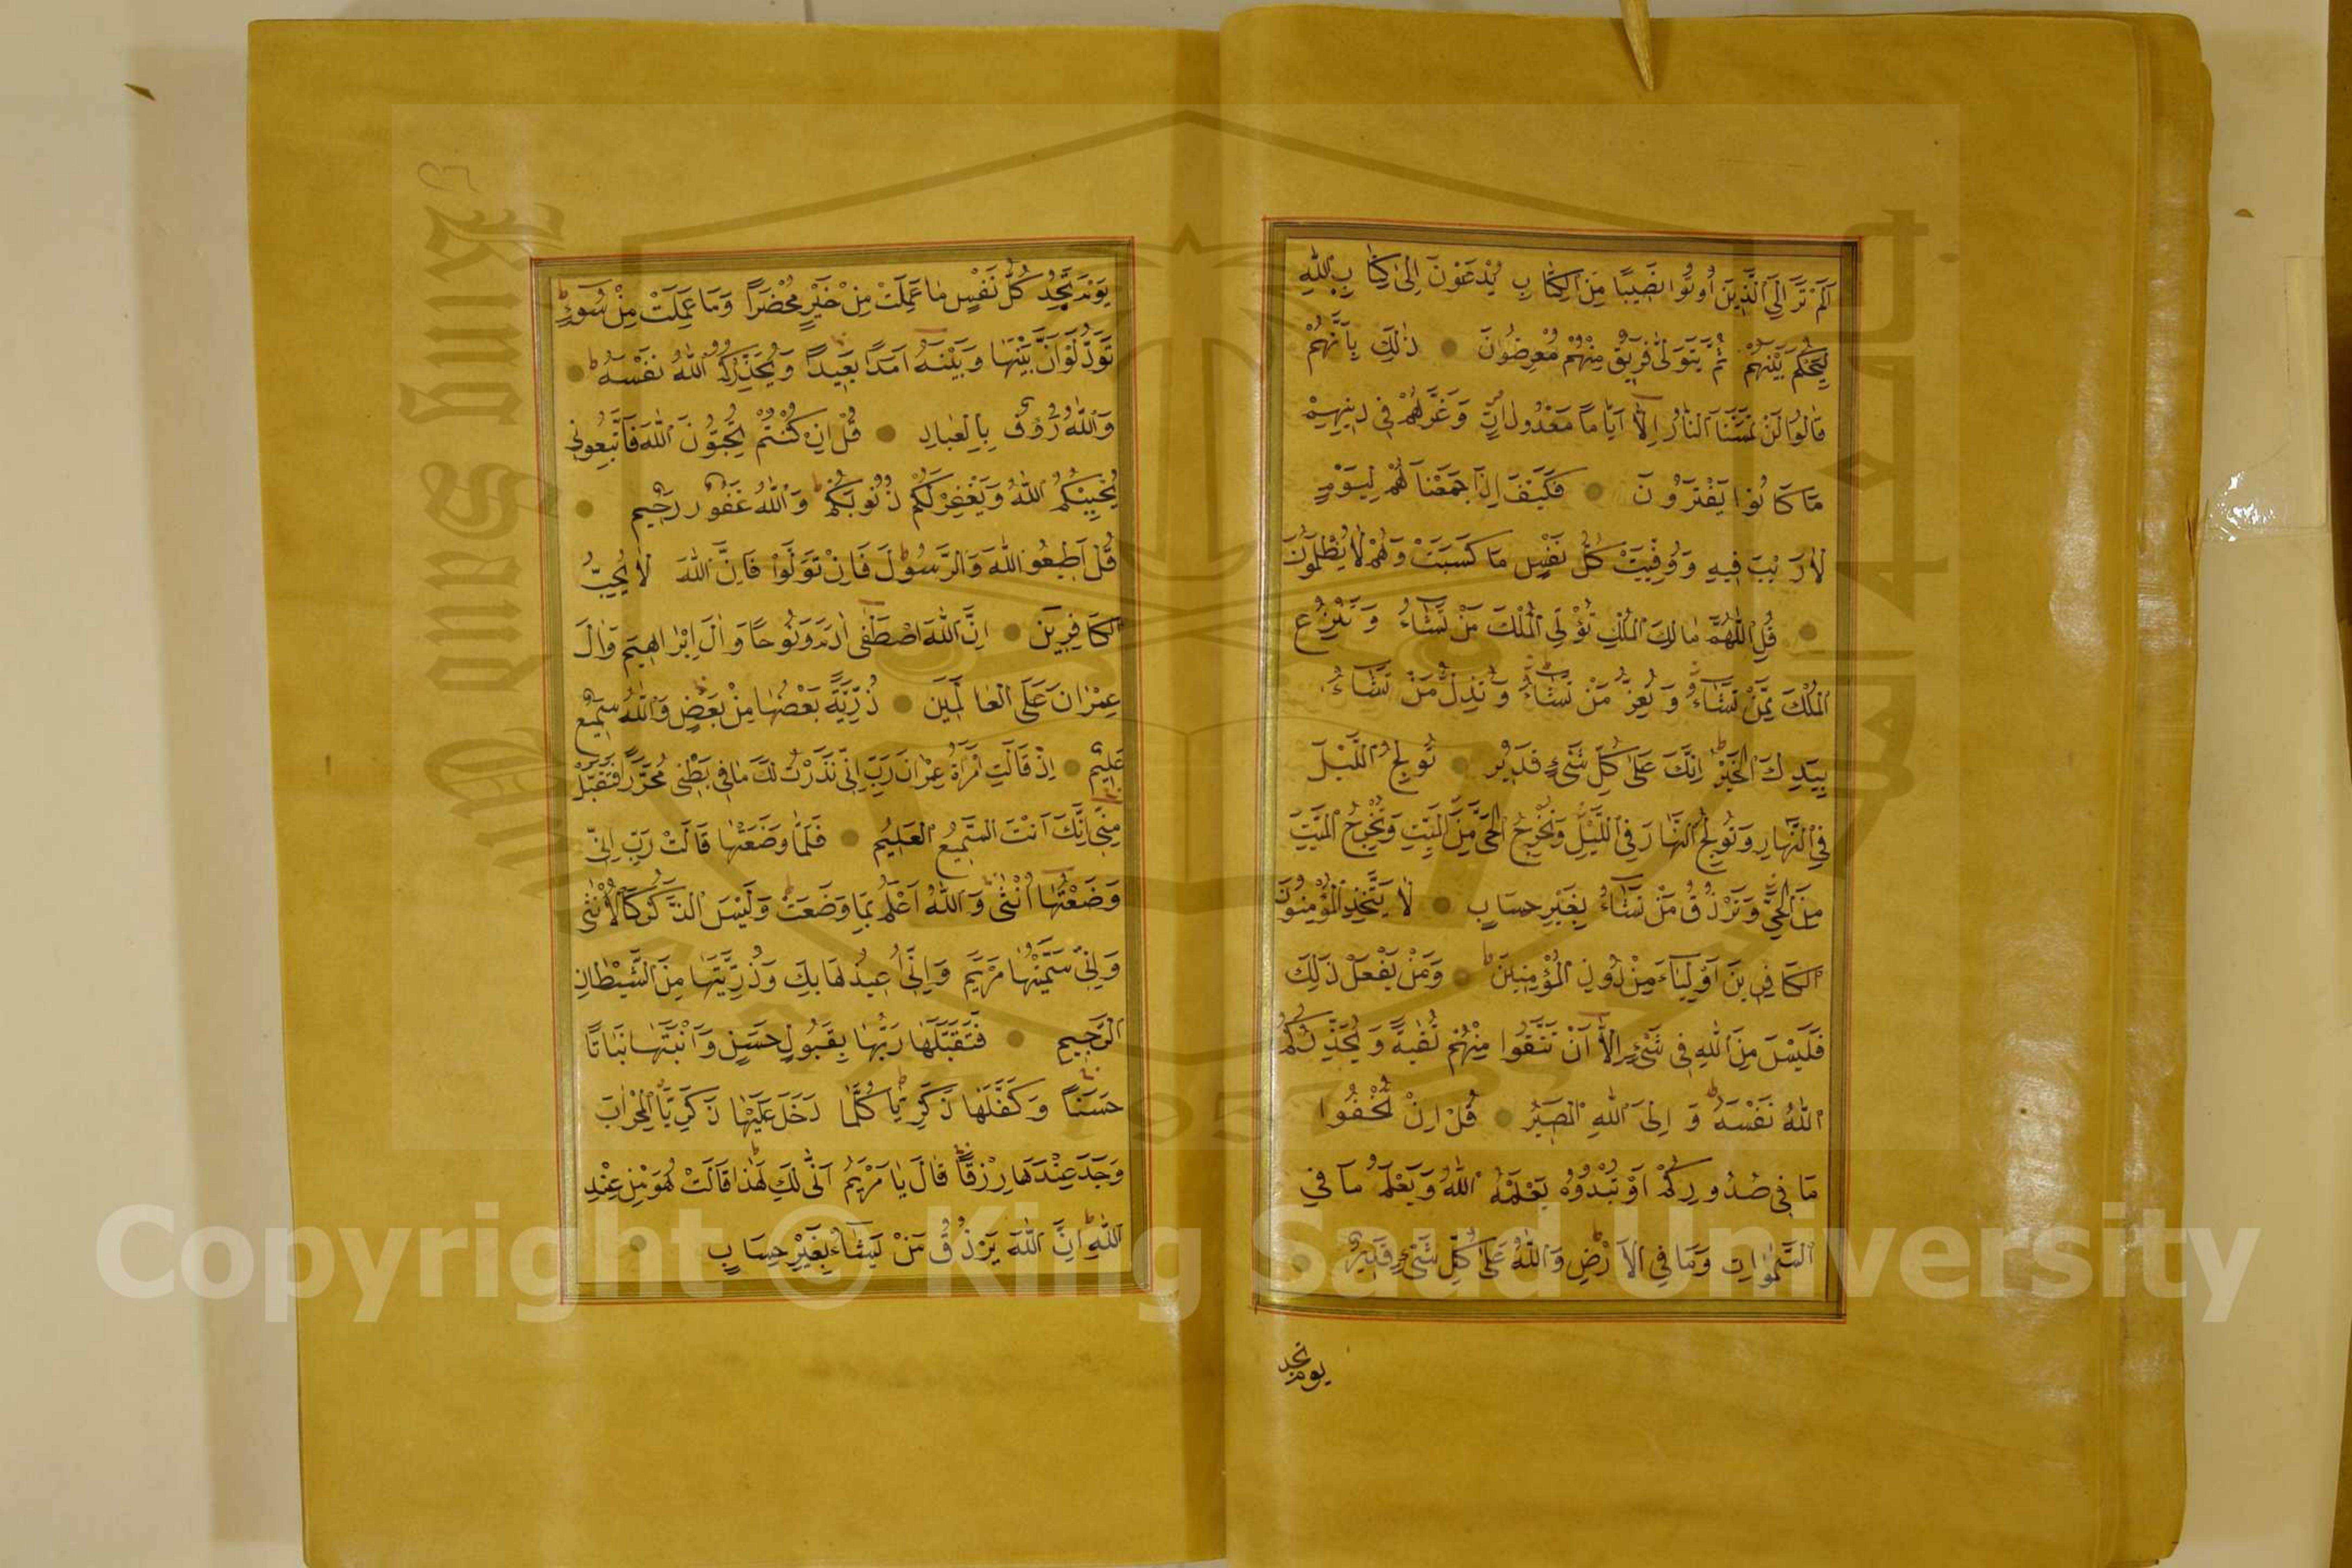 اَلَمْ تَرَ اِلَى الَّذِينَ اُوتُوا نَصِيبًا مِنَ الْكِتَابِ يُدْعَوْنَ اِلٰى كِتَابِ اللّٰهِ
لِيَحْكُمَ بَيْنَهُمْ ثُمَّ يَتَوَلّٰى فَرِيقٌ مِنْهُمْ وَهُمْ مُعْرِضُونَ ذٰلِكَ بِاَنَّهُمْ
قَالُوا لَنْ تَمَسَّنَا النَّارُ اِلَّا اَيَّامًا مَعْدُودَاتٍ وَغَرَّهُمْ فِي دِينِهِمْ
مَا كَانُوا يَفْتَرُونَ فَكَيْفَ اِذَا جَمَعْنَاهُمْ لِيَوْمٍ
لَا رَيْبَ فِيهِ وَوُفِّيَتْ كُلُّ نَفْسٍ مَا كَسَبَتْ وَهُمْ لَا يُظْلَمُونَ
قُلِ اللّٰهُمَّ مَالِكَ الْمُلْكِ تُؤْتِي الْمُلْكَ مَنْ تَشَاءُ وَتَنْزِعُ
الْمُلْكَ مِمَّنْ تَشَاءُ وَتُعِزُّ مَنْ تَشَاءُ وَتُذِلُّ مَنْ تَشَاءُ
بِيَدِكَ الْخَيْرُ اِنَّكَ عَلٰى كُلِّ شَيْءٍ قَدِيرٌ تُولِجُ اللَّيْلَ
فِي النَّهَارِ وَتُولِجُ النَّهَارَ فِي اللَّيْلِ وَتُخْرِجُ الْحَيَّ مِنَ الْمَيِّتِ وَتُخْرِجُ الْمَيِّتَ
مِنَ الْحَيِّ وَتَرْزُقُ مَنْ تَشَاءُ بِغَيْرِ حِسَابٍ لَا يَتَّخِذِ الْمُؤْمِنُونَ
الْكَافِرِينَ اَوْلِيَاءَ مِنْ دُونِ الْمُؤْمِنِينَ وَمَنْ يَفْعَلْ ذٰلِكَ
فَلَيْسَ مِنَ اللّٰهِ فِي شَيْءٍ اِلَّا اَنْ تَتَّقُوا مِنْهُمْ تُقٰيةً وَيُحَذِّرُكُمُ
اللّٰهُ نَفْسَهُ وَاِلَى اللّٰهِ الْمَصِيرُ قُلْ اِنْ تُخْفُوا
مَا فِي صُدُورِكُمْ اَوْ تُبْدُوهُ يَعْلَمْهُ اللّٰهُ وَيَعْلَمُ مَا فِي
السَّمٰوَاتِ وَمَا فِي الْاَرْضِ وَاللّٰهُ عَلٰى كُلِّ شَيْءٍ قَدِيرٌ
يوم تجد
يَوْمَ تَجِدُ كُلُّ نَفْسٍ مَا عَمِلَتْ مِنْ خَيْرٍ مُحْضَرًا وَمَا عَمِلَتْ مِنْ سُوءٍ
تَوَدُّ لَوْ اَنَّ بَيْنَهَا وَبَيْنَهُ اَمَدًا بَعِيدًا وَيُحَذِّرُكُمُ اللّٰهُ نَفْسَهُ
وَاللّٰهُ رَؤُفٌ بِالْعِبَادِ قُلْ اِنْ كُنْتُمْ تُحِبُّونَ اللّٰهَ فَاتَّبِعُونِي
يُحْبِبْكُمُ اللّٰهُ وَيَغْفِرْ لَكُمْ ذُنُوبَكُمْ وَاللّٰهُ غَفُورٌ رَحِيمٌ
قُلْ اَطِيعُوا اللّٰهَ وَالرَّسُولَ فَاِنْ تَوَلَّوْا فَاِنَّ اللّٰهَ لَا يُحِبُّ
الْكَافِرِينَ اِنَّ اللّٰهَ اصْطَفٰى اٰدَمَ وَنُوحًا وَاٰلَ اِبْرَاهِيمَ وَاٰلَ
عِمْرَانَ عَلَى الْعَالَمِينَ ذُرِّيَّةً بَعْضُهَا مِنْ بَعْضٍ وَاللّٰهُ سَمِيعٌ
عَلِيمٌ اِذْ قَالَتِ امْرَاَةُ عِمْرَانَ رَبِّ اِنِّي نَذَرْتُ لَكَ مَا فِي بَطْنِي مُحَرَّرًا فَتَقَبَّلْ
مِنِّي اِنَّكَ اَنْتَ السَّمِيعُ الْعَلِيمُ فَلَمَّا وَضَعَتْهَا قَالَتْ رَبِّ اِنِّي
وَضَعْتُهَا اُنْثٰى وَاللّٰهُ اَعْلَمُ بِمَا وَضَعَتْ وَلَيْسَ الذَّكَرُ كَالْاُنْثٰى
وَاِنِّي سَمَّيْتُهَا مَرْيَمَ وَاِنِّي اُعِيذُهَا بِكَ وَذُرِّيَّتَهَا مِنَ الشَّيْطَانِ
الرَّجِيمِ فَتَقَبَّلَهَا رَبُّهَا بِقَبُولٍ حَسَنٍ وَاَنْبَتَهَا نَبَاتًا
حَسَنًا وَكَفَّلَهَا زَكَرِيَّا كُلَّمَا دَخَلَ عَلَيْهَا زَكَرِيَّا الْمِحْرَابَ
وَجَدَ عِنْدَهَا رِزْقًا قَالَ يَا مَرْيَمُ اَنّٰى لَكِ هٰذَا قَالَتْ هُوَ مِنْ عِنْدِ
اللّٰهِ اِنَّ اللّٰهَ يَرْزُقُ مَنْ يَشَاءُ بِغَيْرِ حِسَابٍ
Copyright © King Saud University
King Saud University
1957